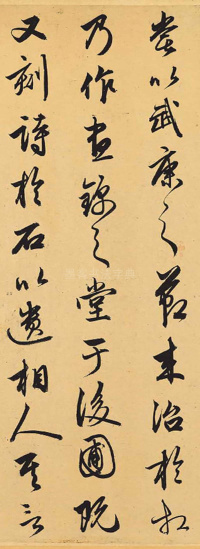 嘗以武康之節來治於相
乃作昼錦之堂于後圃既
又刻詩於石以遺相人其言